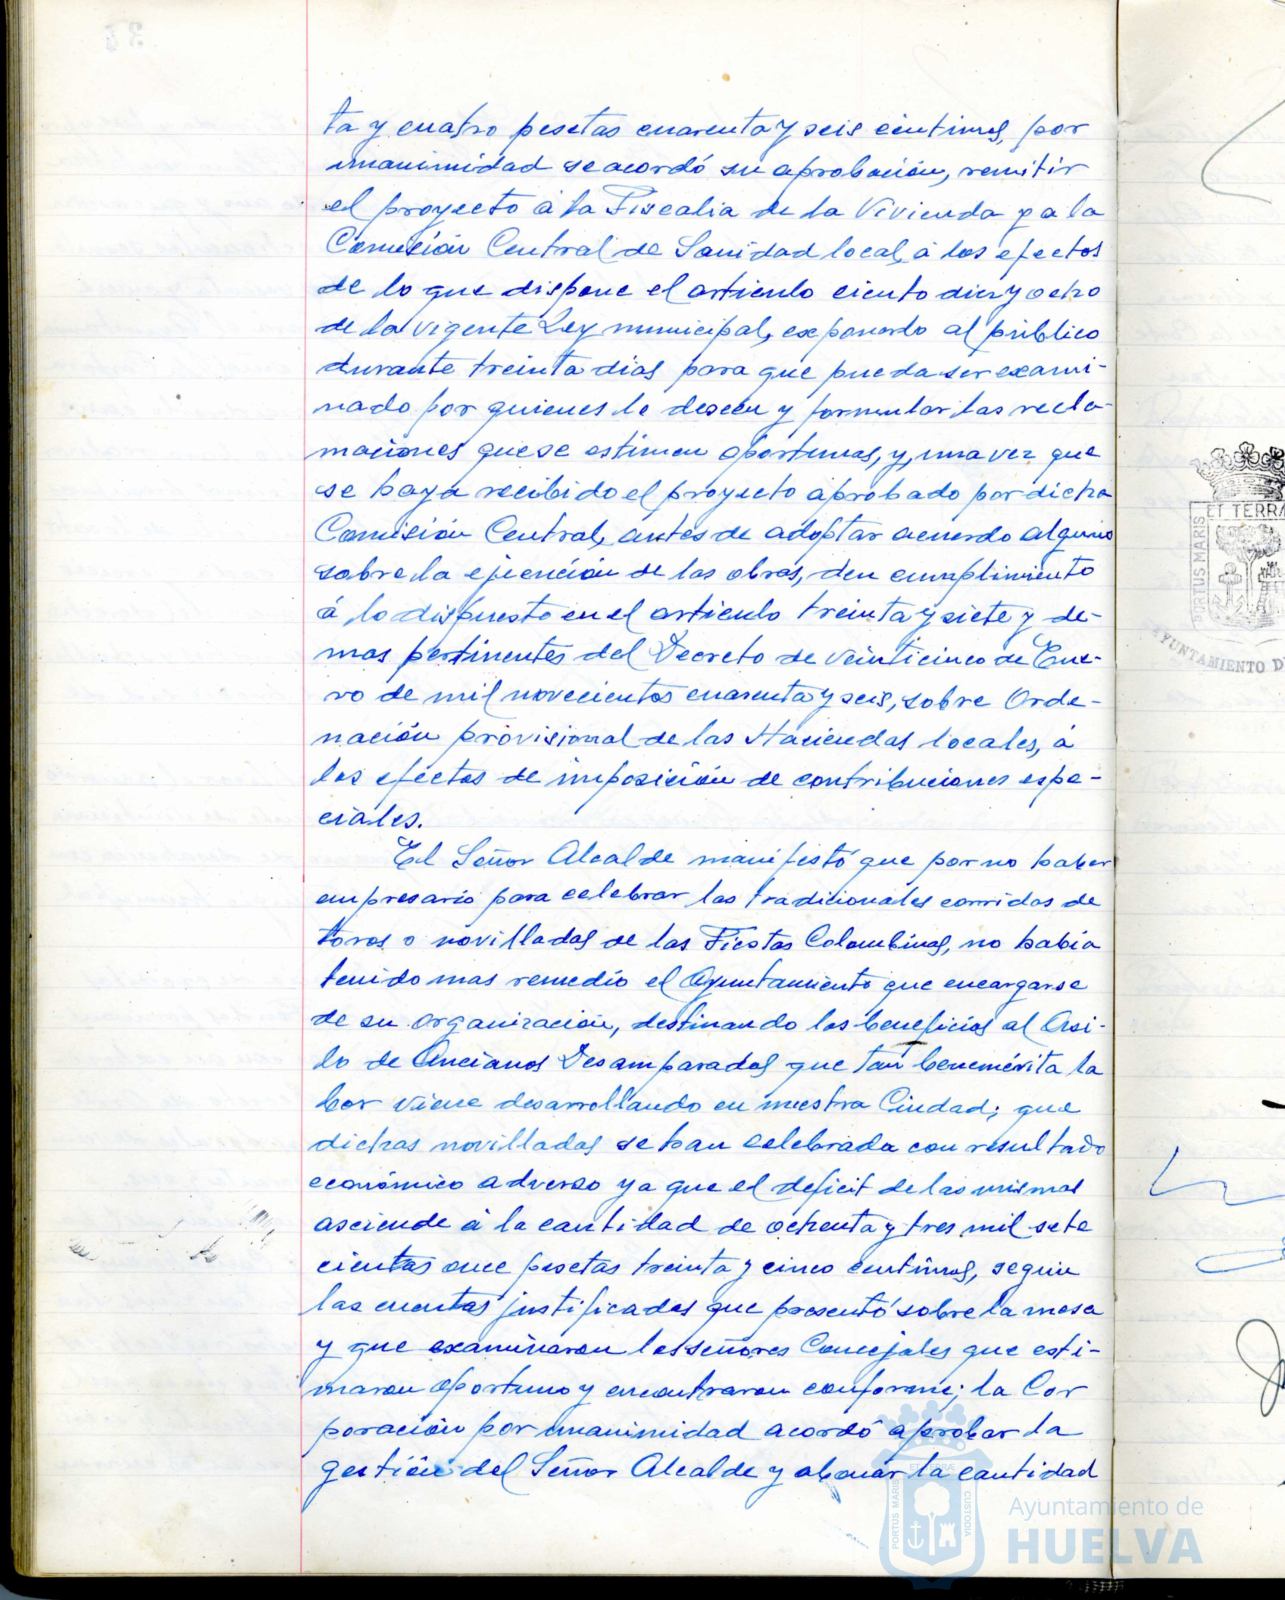 ta y cuatro pesetas cuarenta y seis céntimos, por
unanimidad se acordó su aprobación, remitir
el proyecto á la Fiscalia de la Vivienda y a la
Comisión Central de Sanidad local, á los efectos
de lo que dispone el artículo ciento diez y ocho
de la vigente Ley municipal, exponerlo al público
durante treinta dias para que pueda ser exami-
nado por quienes lo deseen y formular las recla-
maciones que se estimen oportunas, y, una vez que
se haya recibido el proyecto aprobado por dicha
Comisión Central, antes de adoptar acuerdo alguno
sobre la ejecución de las obras, den cumplimiento
á lo dispuesto en el articulo treinta y siete y de-
mas pertinentes del Decreto de veinticinco de Ene-
ro de mil novecientos cuarenta y seis, sobre Orde-
nación provisional de las Haciendas locales, á
los efectos de imposición de contribuciones espe-
ciales.
El Señor Alcalde manifestó que por no haber
empresario para celebrar las tradicionales corridas de
toros o novilladas de las Fiestas Colombinas, no habia
tenido mas remedio el Ayuntamiento que encargarse
de su organización, destinando los beneficios al Asi-
lo de Ancianos Desamparados que tan benemérita la
bor viene desarrollando en nuestra Ciudad; que
dichas novilladas se han celebrada con resultado
económico adverso ya que el deficit de las mismas
asciende á la cantidad de ochenta y tres mil sete
cientas once pesetas treinta y cinco centimos, según
las cuentas justificadas que presentó sobre la mesa
y que examinaron los señores Concejales que esti-
maron oportuno y encontraron conforme; la Cor
poración por unanimidad acordó aprobar la
gestión del Señor Alcalde y abonar la cantidad
ET TERRA
PORTUS MARIS
AYUNTAMIENTO DE
PORTUS MARIS
ET TERRAE
CUSTODIA
Ayuntamiento de
HUELVA